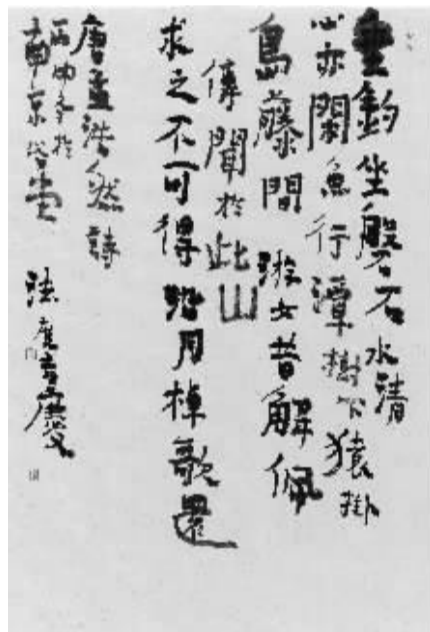 垂釣坐磐石水清
心亦閑魚行潭樹下猿掛
島藤間游女昔解佩
傳聞於此山
求之不可得沿月棹歌還
唐孟浩然詩
年於
南京